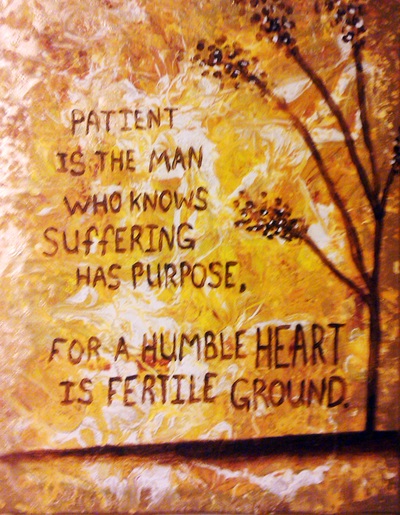 PATIENT
IS THE MAN
WHO KNOWS
SUffERING
HAS PURPOSE.
FOR A HUMBLE HEART
IS FERTILE GROUND.